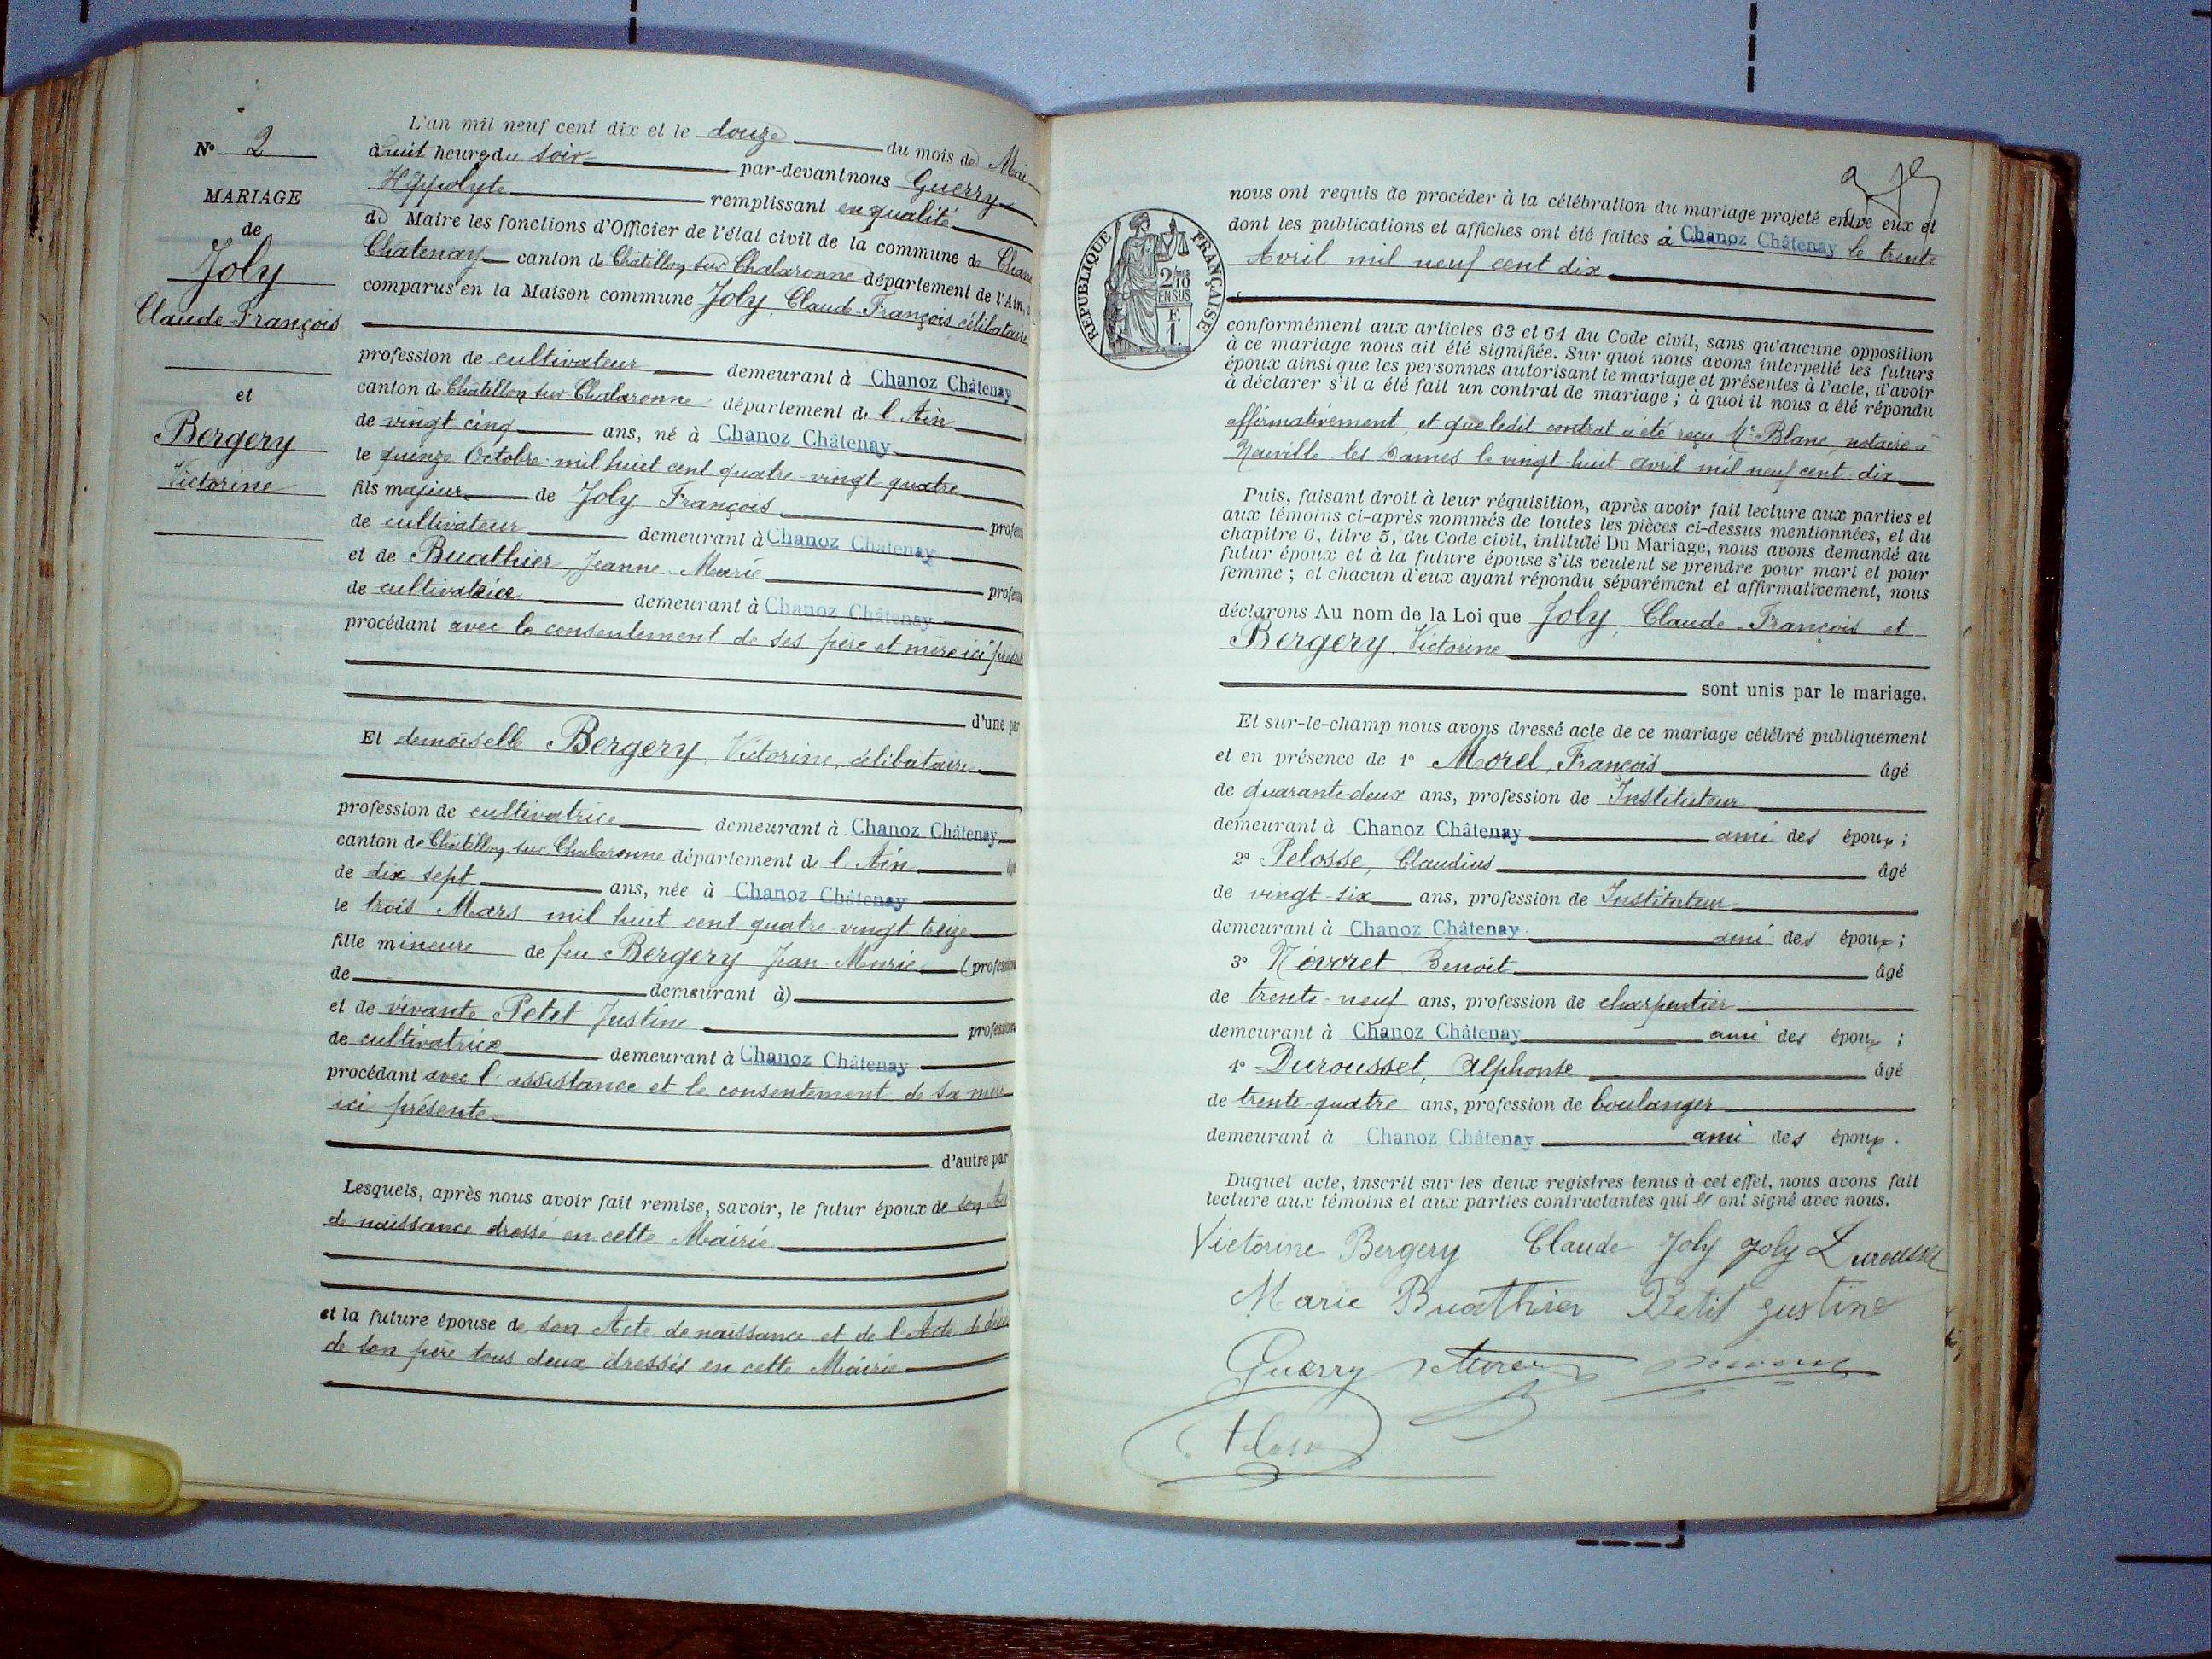 N° 2
MARIAGE
de
Joly
Claude François
et
Bergery
Victorine
L'an mil neuf cent dix et le douze du mois de Mai
à huit heures du soir par-devant nous Guerry
Hippolyte remplissant en qualité
de Maire les fonctions d'Officier de l'état civil de la commune de Chanoz
Chatenay canton de Châtillon sur Chalaronne département de l'Ain,
comparus en la Maison commune Joly, Claude-François célibataire
profession de cultivateur demeurant à Chanoz Châtenay
canton de Chatillon sur Chalaronne département de l'Ain
de vingt cinq ans, né à Chanoz Châtenay
le quinze Octobre mil huit cent quatre-vingt quatre
fils majeur de Joly François profession
de cultivateur demeurant à Chanoz Châtenay
et de Buathier Jeanne Marie profession
de cultivatrice demeurant à Chanoz Châtenay
procédant avec le consentement de ses père et mère ici présents
d'une part
Et demoiselle Bergery, Victorine, célibataire
profession de cultivatrice demeurant à Chanoz Châtenay
canton de Châtillon sur Chalaronne département de l'Ain
de dix sept ans, née à Chanoz Châtenay
le trois Mars mil huit cent quatre vingt treize
fille mineure de feu Bergery Jean Marie (profession
de demeurant à)
et de vivante Petit Justine profession
de cultivatrice demeurant à Chanoz Châtenay
procédant avec l'assistance et le consentement de sa mère
ici présente
d'autre part
Lesquels, après nous avoir fait remise, savoir, le futur époux de son Acte
de naissance dressé en cette Mairie
et la future épouse de son Acte de naissance et de l'Acte de décès
de son père tous deux dressés en cette Mairie
REPUBLIQUE FRANÇAISE
2/10
EN SUS
F.
1.
nous ont requis de procéder à la célébration du mariage projeté entre eux et
dont les publications et affiches ont été faites à Chanoz Châtenay le trente
Avril mil neuf cent dix
conformément aux articles 63 et 64 du Code civil, sans qu'aucune opposition
à ce mariage nous ait été signifiée. Sur quoi nous avons interpellé les futurs
époux ainsi que les personnes autorisant le mariage et présentes à l'acte, d'avoir
à déclarer s'il a été fait un contrat de mariage ; à quoi il nous a été répondu
affirmativement, et que ledit contrat a été reçu Me Blanc, notaire à
Neuville-les Dames le vingt-huit avril mil neuf cent dix
Puis, faisant droit à leur réquisition, après avoir fait lecture aux parties et
aux témoins ci-après nommés de toutes les pièces ci-dessus mentionnées, et du
chapitre 6, titre 5, du Code civil, intitulé Du Mariage, nous avons demandé au
futur époux et à la future épouse s'ils veulent se prendre pour mari et pour
femme ; et chacun d'eux ayant répondu séparément et affirmativement, nous
déclarons Au nom de la Loi que Joly, Claude-François et
Bergery, Victorine
sont unis par le mariage.
Et sur-le-champ nous avons dressé acte de ce mariage célébré publiquement
et en présence de 1° Morel, François âgé
de quarante-deux ans, profession de Instituteur
demeurant à Chanoz Châtenay ami des époux ;
2° Pelosse, Claudius âgé
de vingt-six ans, profession de Instituteur
demeurant à Chanoz Châtenay ami des époux ;
3° Névoret Benoit âgé
de trente-neuf ans, profession de charpentier
demeurant à Chanoz Châtenay ami des époux ;
4° Durousset, Alphonse âgé
de trente-quatre ans, profession de boulanger
demeurant à Chanoz Châtenay ami des époux.
Duquel acte, inscrit sur les deux registres tenus à cet effet, nous avons fait
lecture aux témoins et aux parties contractantes qui ont signé avec nous.
Victorine Bergery Claude Joly Joly Durousset
Marie Buathier Petit Justine
Guerry Morel